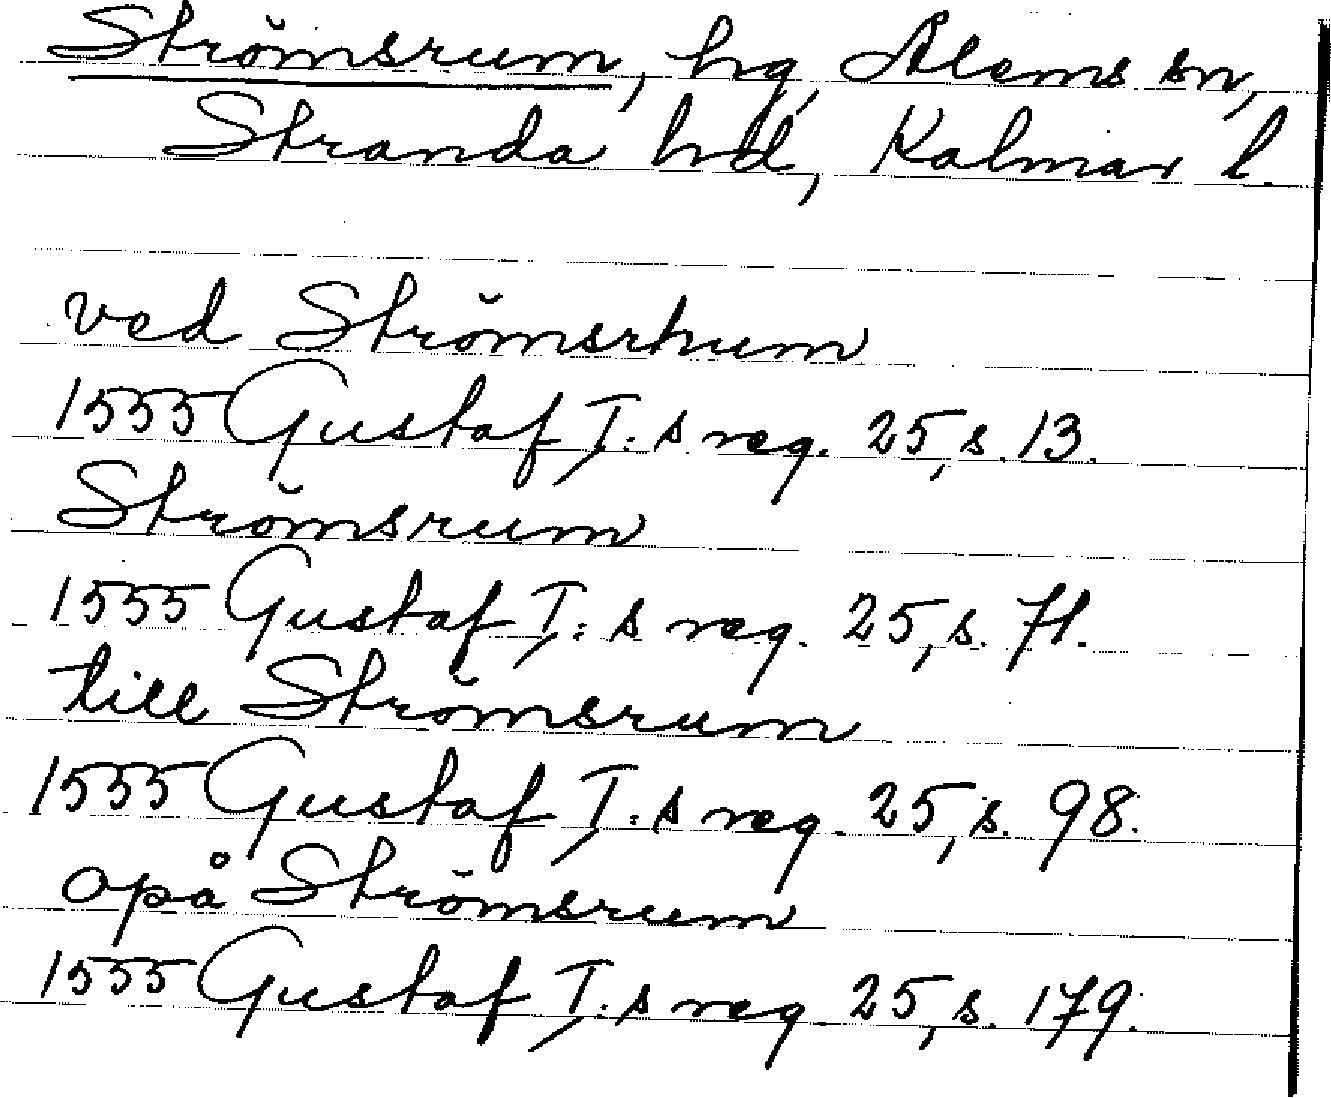 Strömsrum, hg, Ålems sn,
Stranda hd, Kalmar l.
ved Strömsrhum
1555 Gustaf I:s reg. 25, s. 13.
Strömsrum
1555 Gustaf I:s reg. 25, s. 71.
till Strömsrum
1555 Gustaf I:s reg. 25, s. 98.
opå Strömsrum
1555 Gustaf I:s reg 25, s. 179.